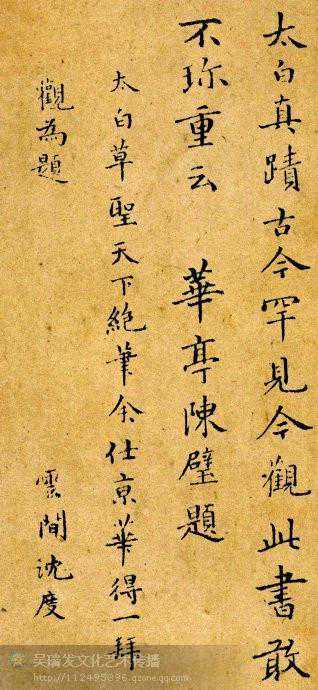 太白真蹟古今罕見今觀此書敢
不珎重云　華亭陳璧題
太白草聖天下絶筆余仕京華得一拜
觀為題　雲間沈度
吴瑞发文化艺术传播
http://112495096.qzone.qq.com